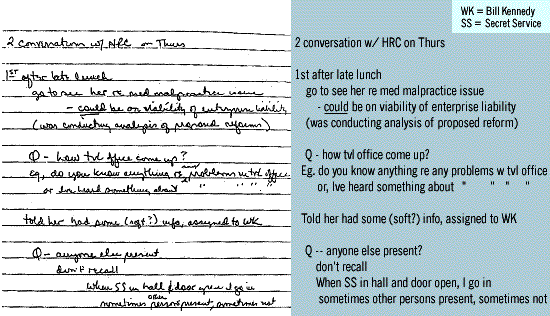 WK = Bill Kennedy
SS = Secret Service
2 conversation w/ HRC on Thurs
1ST after late lunch
go to see her re med malpractice issue
- could be on viability of enterprise liability
(was conducting analysis of proposed reforms)
Q - how tvl office come up?
eg, do you know anything re any problems w tvl office
or Ive heard something about " " " "
told her had some (soft?) info, assigned to WK
Q - anyone else present
don't recall
When SS in hall & door open I go in
sometimes other persons present, sometimes not
2 conversation w/ HRC on Thurs
1st after late lunch
go to see her re med malpractice issue
- could be on viability of enterprise liability
(was conducting analysis of proposed reform)
Q - how tvl office come up?
Eg. do you know anything re any problems w tvl office
or, Ive heard something about " " " "
Told her had some (soft?) info, assigned to WK
Q -- anyone else present?
don't recall
When SS in hall and door open, I go in
sometimes other persons present, sometimes not